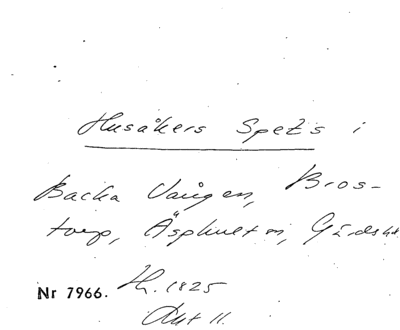 Husåkers Spets i
Backa Vången, Bros-
torp, Äsphult m, Gärdsh.
Nr 7966. H. 1825
Akt 11.